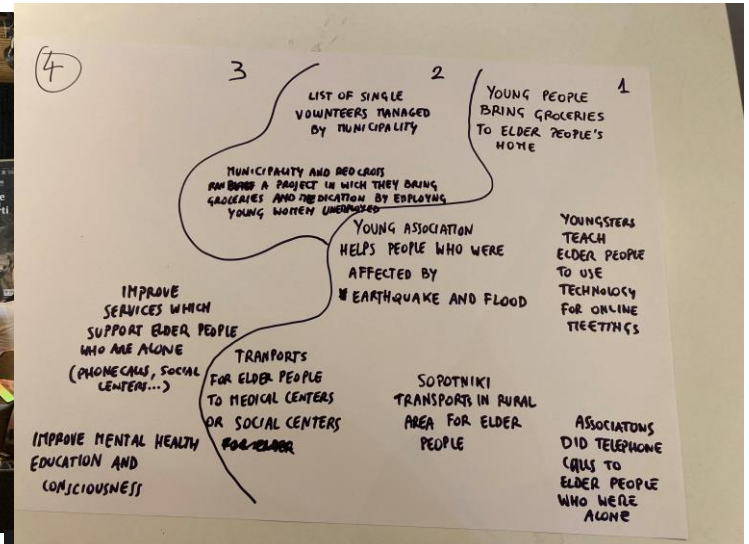 4
3
2
1
LIST OF SINGLE
VOLUNTEERS MANAGED
BY MUNICIPALITY
YOUNG PEOPLE
BRING GROCERIES
TO ELDER PEOPLE'S
HOME
MUNICIPALITY AND RED CROSS
RAN A PROJECT IN WICH THEY BRING
GROCERIES AND MEDICATION BY EMPLOYNG
YOUNG WOMEN UNEMPLOYED
YOUNG ASSOCIATION
HELPS PEOPLE WHO WERE
AFFECTED BY
EARTHQUAKE AND FLOOD
YOUNGSTERS
TEACH
ELDER PEOPLE
TO USE
TECHNOLOGY
FOR ONLINE
MEETINGS
IMPROVE
SERVICES WHICH
SUPPORT ELDER PEOPLE
WHO ARE ALONE
(PHONE CALLS, SOCIAL
CENTERS...)
TRANPORTS
FOR ELDER PEOPLE
TO MEDICAL CENTERS
OR SOCIAL CENTERS
FOR ELDER
SOPOTNIKI
TRANSPORTS IN RURAL
AREA FOR ELDER
PEOPLE
ASSOCIATONS
DID TELEPHONE
CALLS TO
ELDER PEOPLE
WHO WERE
ALONE
IMPROVE MENTAL HEALTH
EDUCATION AND
CONSCIOUSNESS